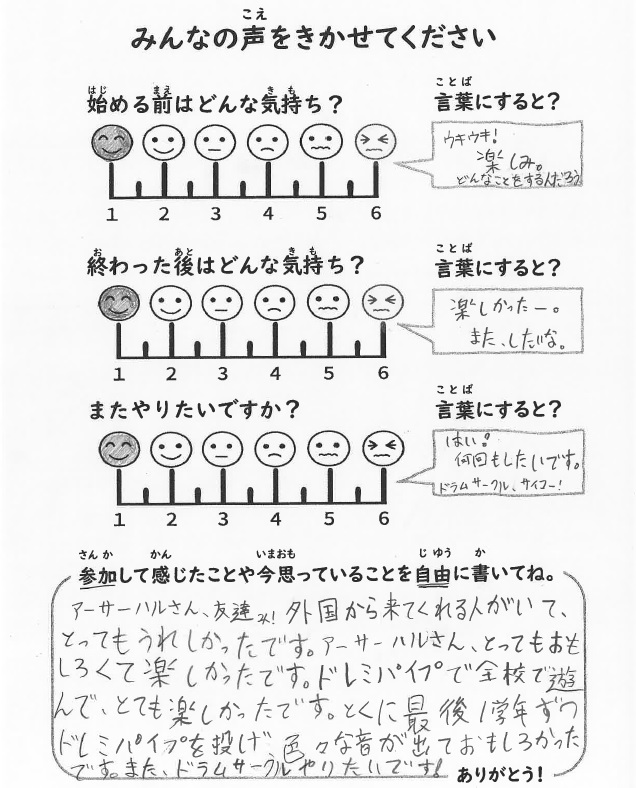 こえ
みんなの声をきかせてください
はじ まえ き も
始める前はどんな気持ち？
ことば
言葉にすると？
ウキウキ！
楽しみ。
どんなことをするんだろう
1 2 3 4 5 6
お あと き も
終わった後はどんな気持ち？
ことば
言葉にすると？
楽しかったー。
また、したいな。
1 2 3 4 5 6
またやりたいですか？
ことば
言葉にすると？
はい！
何回もしたいです。
ドラムサークル、サイコー！
1 2 3 4 5 6
さんか かん いまおも じゆう か
参加して感じたことや今思っていることを自由に書いてね。
アーサーハルさん、友達 外国から来てくれる人がいて、
とってもうれしかったです。アーサーハルさん、とってもおも
しろくて楽しかったです。ドレミパイプで全校で遊
んで、とても楽しかったです。とくに最後1学年ずつ
ドレミパイプを投げ、色々な音が出ておもしろかった
です。また、ドラムサークルやりたいです！
ありがとう！